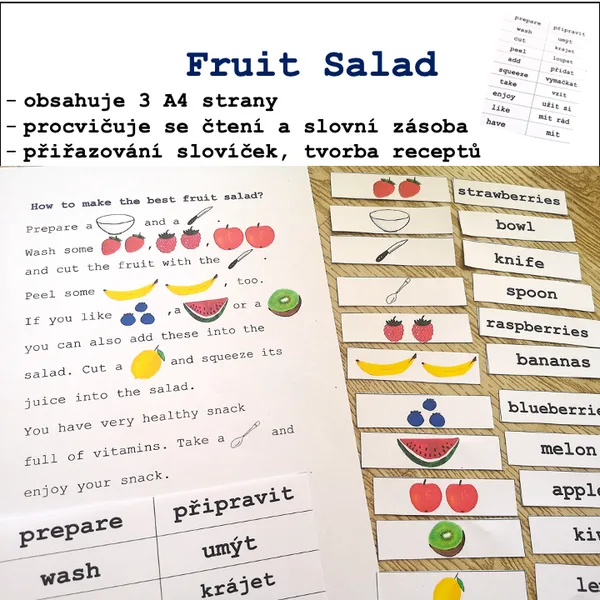 Fruit Salad
- obsahuje 3 A4 strany
- procvičuje se čtení a slovní zásoba
- přiřazování slovíček, tvorba receptů
prepare připravit
wash umýt
cut krájet
peel loupat
add přidat
squeeze vymačkat
take vzít
enjoy užít si
like mít rád
have mít
How to make the best fruit salad?
Prepare a and a .
Wash some , , ,
and cut the fruit with the .
Peel some , too.
If you like , a or a
you can also add these into the
salad. Cut a and squeeze its
juice into the salad.
You have very healthy snack
full of vitamins. Take a and
enjoy your snack.
prepare připravit
wash umýt
krájet
strawberries
bowl
knife
spoon
raspberries
bananas
blueberrie
melon
apple
kiw
le